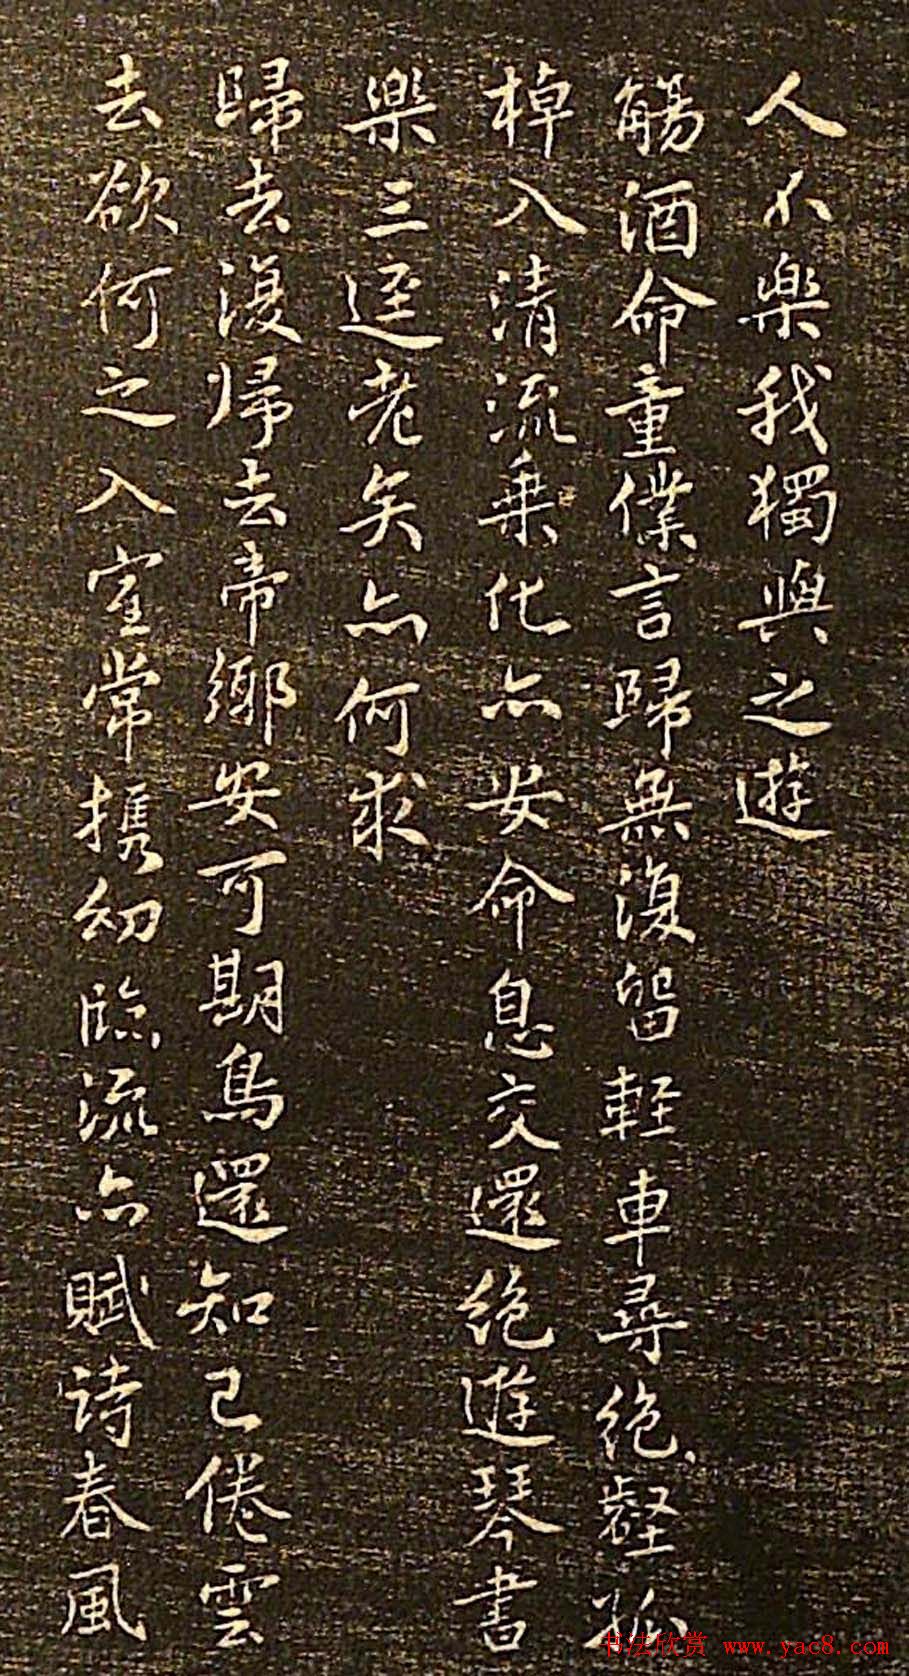 人不樂我獨與之遊
觴酒命童僕言歸無復留輕車尋絶壑孤
棹入清流乗化亦安命息交還絶遊琴書
樂三逕老矣亦何求
歸去復歸去帝鄉安可期鳥還知已倦雲
去欲何之入室常携幼臨流亦賦詩春風
书法欣赏 www.yac8.com